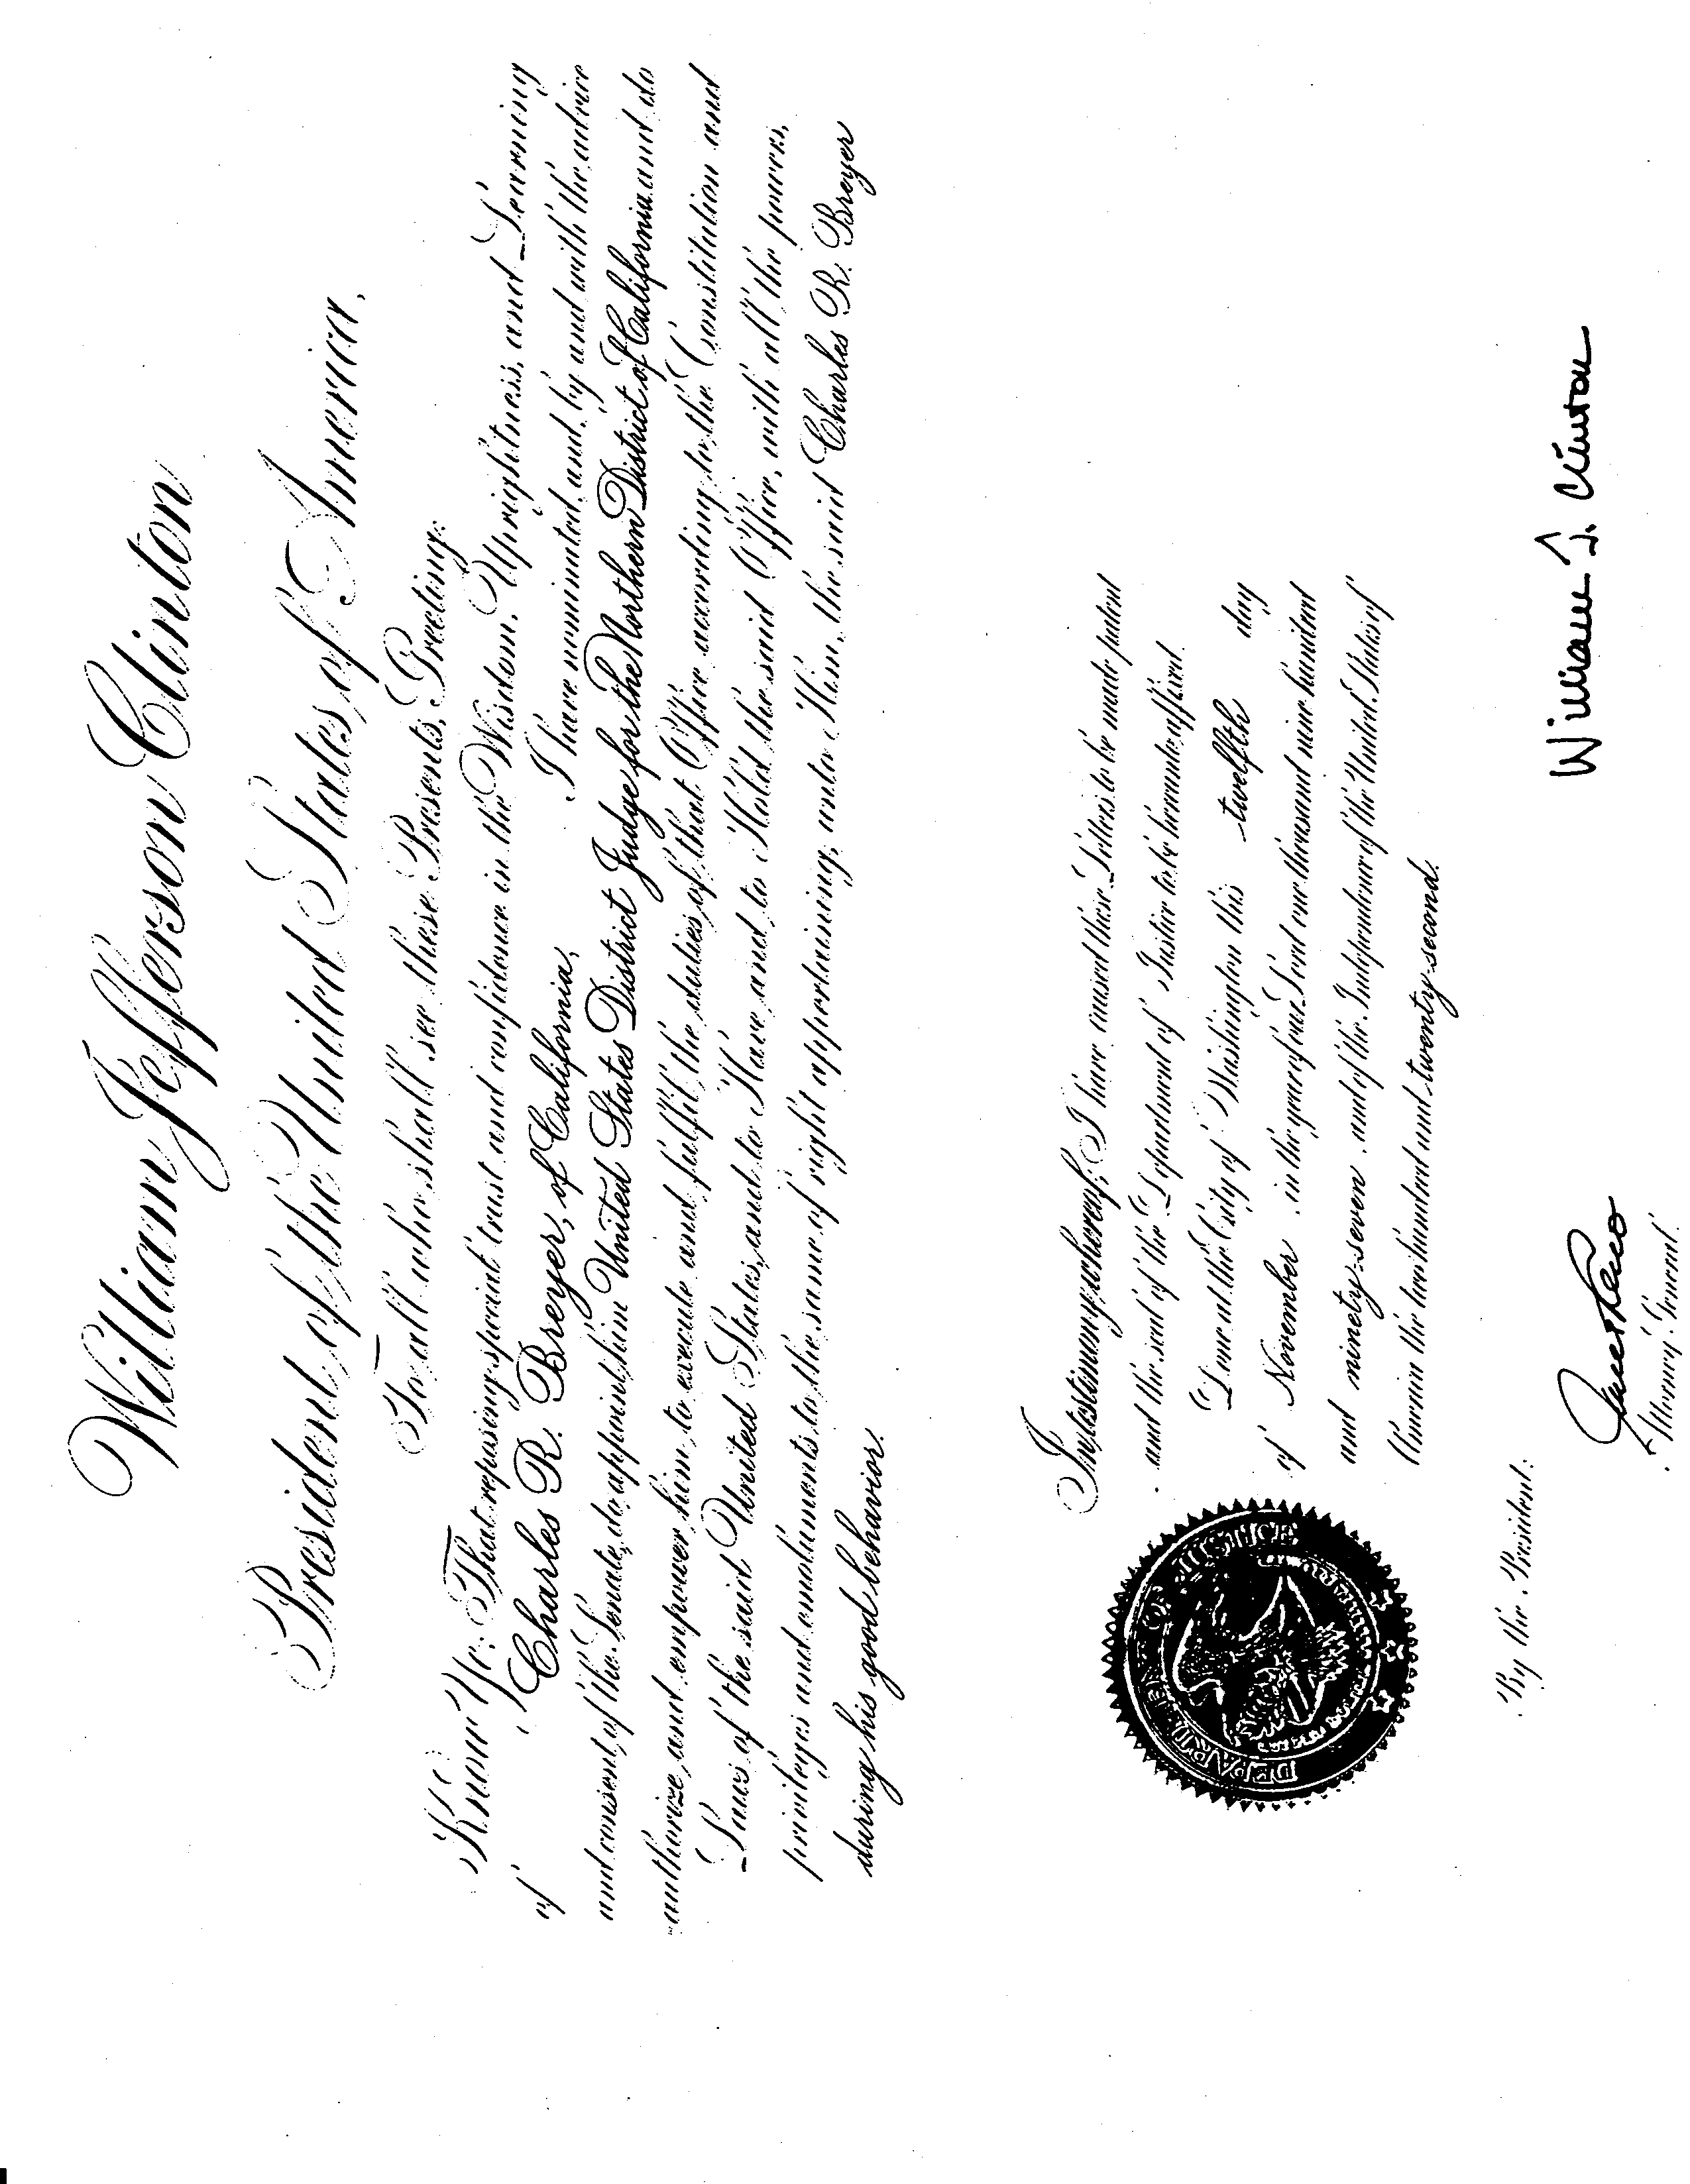 William Jefferson Clinton
President of the United States of America,
To all who shall see these Presents, Greeting:
Know Ye: That reposing special trust and confidence in the Wisdom, Uprightness, and Learning
of Charles R. Breyer, of California, I have nominated, and, by and with the advice
and consent of the Senate, do appoint him United States District Judge for the Northern District of California and do
authorize and empower him to execute and fulfil the duties of that Office according to the Constitution and
Laws of the said United States, and to Have and to Hold the said Office, with all the powers,
privileges and emoluments to the same of right appertaining, unto Him, the said Charles R. Breyer
during his good behavior.
In testimony whereof, I have caused these Letters to be made patent
and the seal of the Department of Justice to be hereunto affixed.
Done at the City of Washington this twelfth day
of November in the year of our Lord one thousand nine hundred
and ninety-seven, and of the Independence of the United States of
America the two hundred and twenty-second.
DEPARTMENT OF JUSTICE
William J. Clinton
By the President:
Janet Reno
Attorney General.